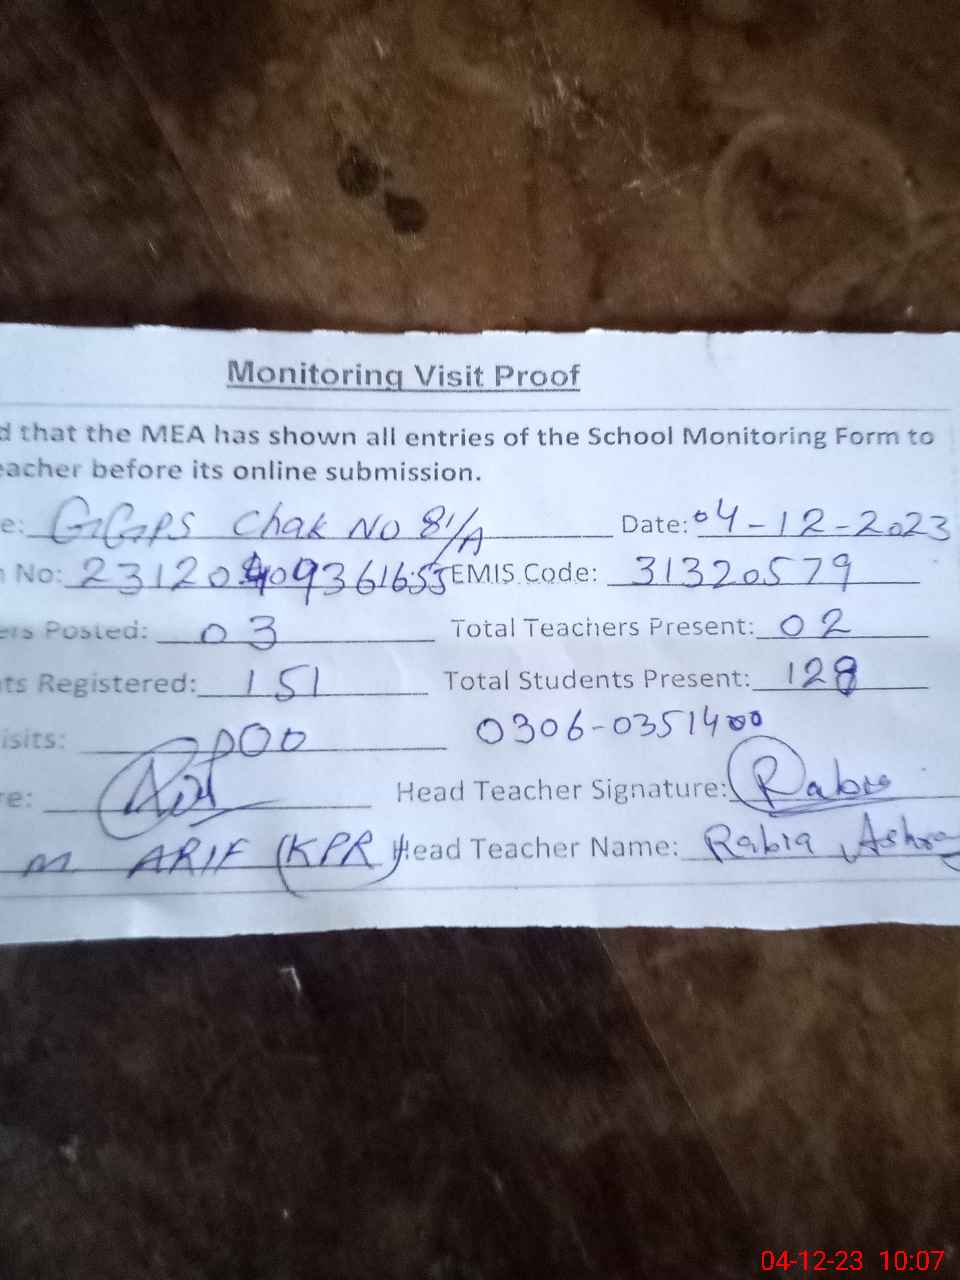 Monitoring Visit Proof
d that the MEA has shown all entries of the School Monitoring Form to
eacher before its online submission.
e: GGPS Chak No 81/A Date: 04-12-2023
No: EMIS Code: 31320579
ers Posted: 03 Total Teachers Present: 02
ts Registered: 151 Total Students Present: 128
isits: 000 0306-0351400
re: Head Teacher Signature: Rabia
M. ARIF (KPR) Head Teacher Name: Rabia Ashra
04-12-23 10:07